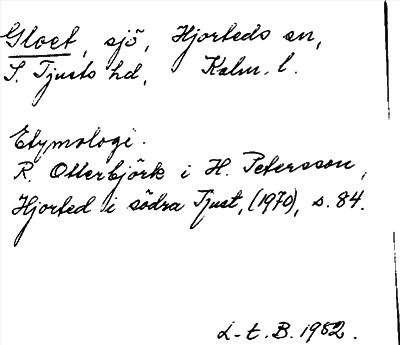 Gloet, sjö, Hjorteds sn,
S. Tjusts hd, Kalm. l.
Etymologi.
R. Otterbjörk i H. Petersson,
Hjorted i södra Tjust, (1970), s. 84.
L-t. B. 1982.